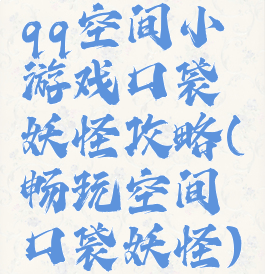 qq空间小
游戏口袋
妖怪攻略(
畅玩空间
口袋妖怪)